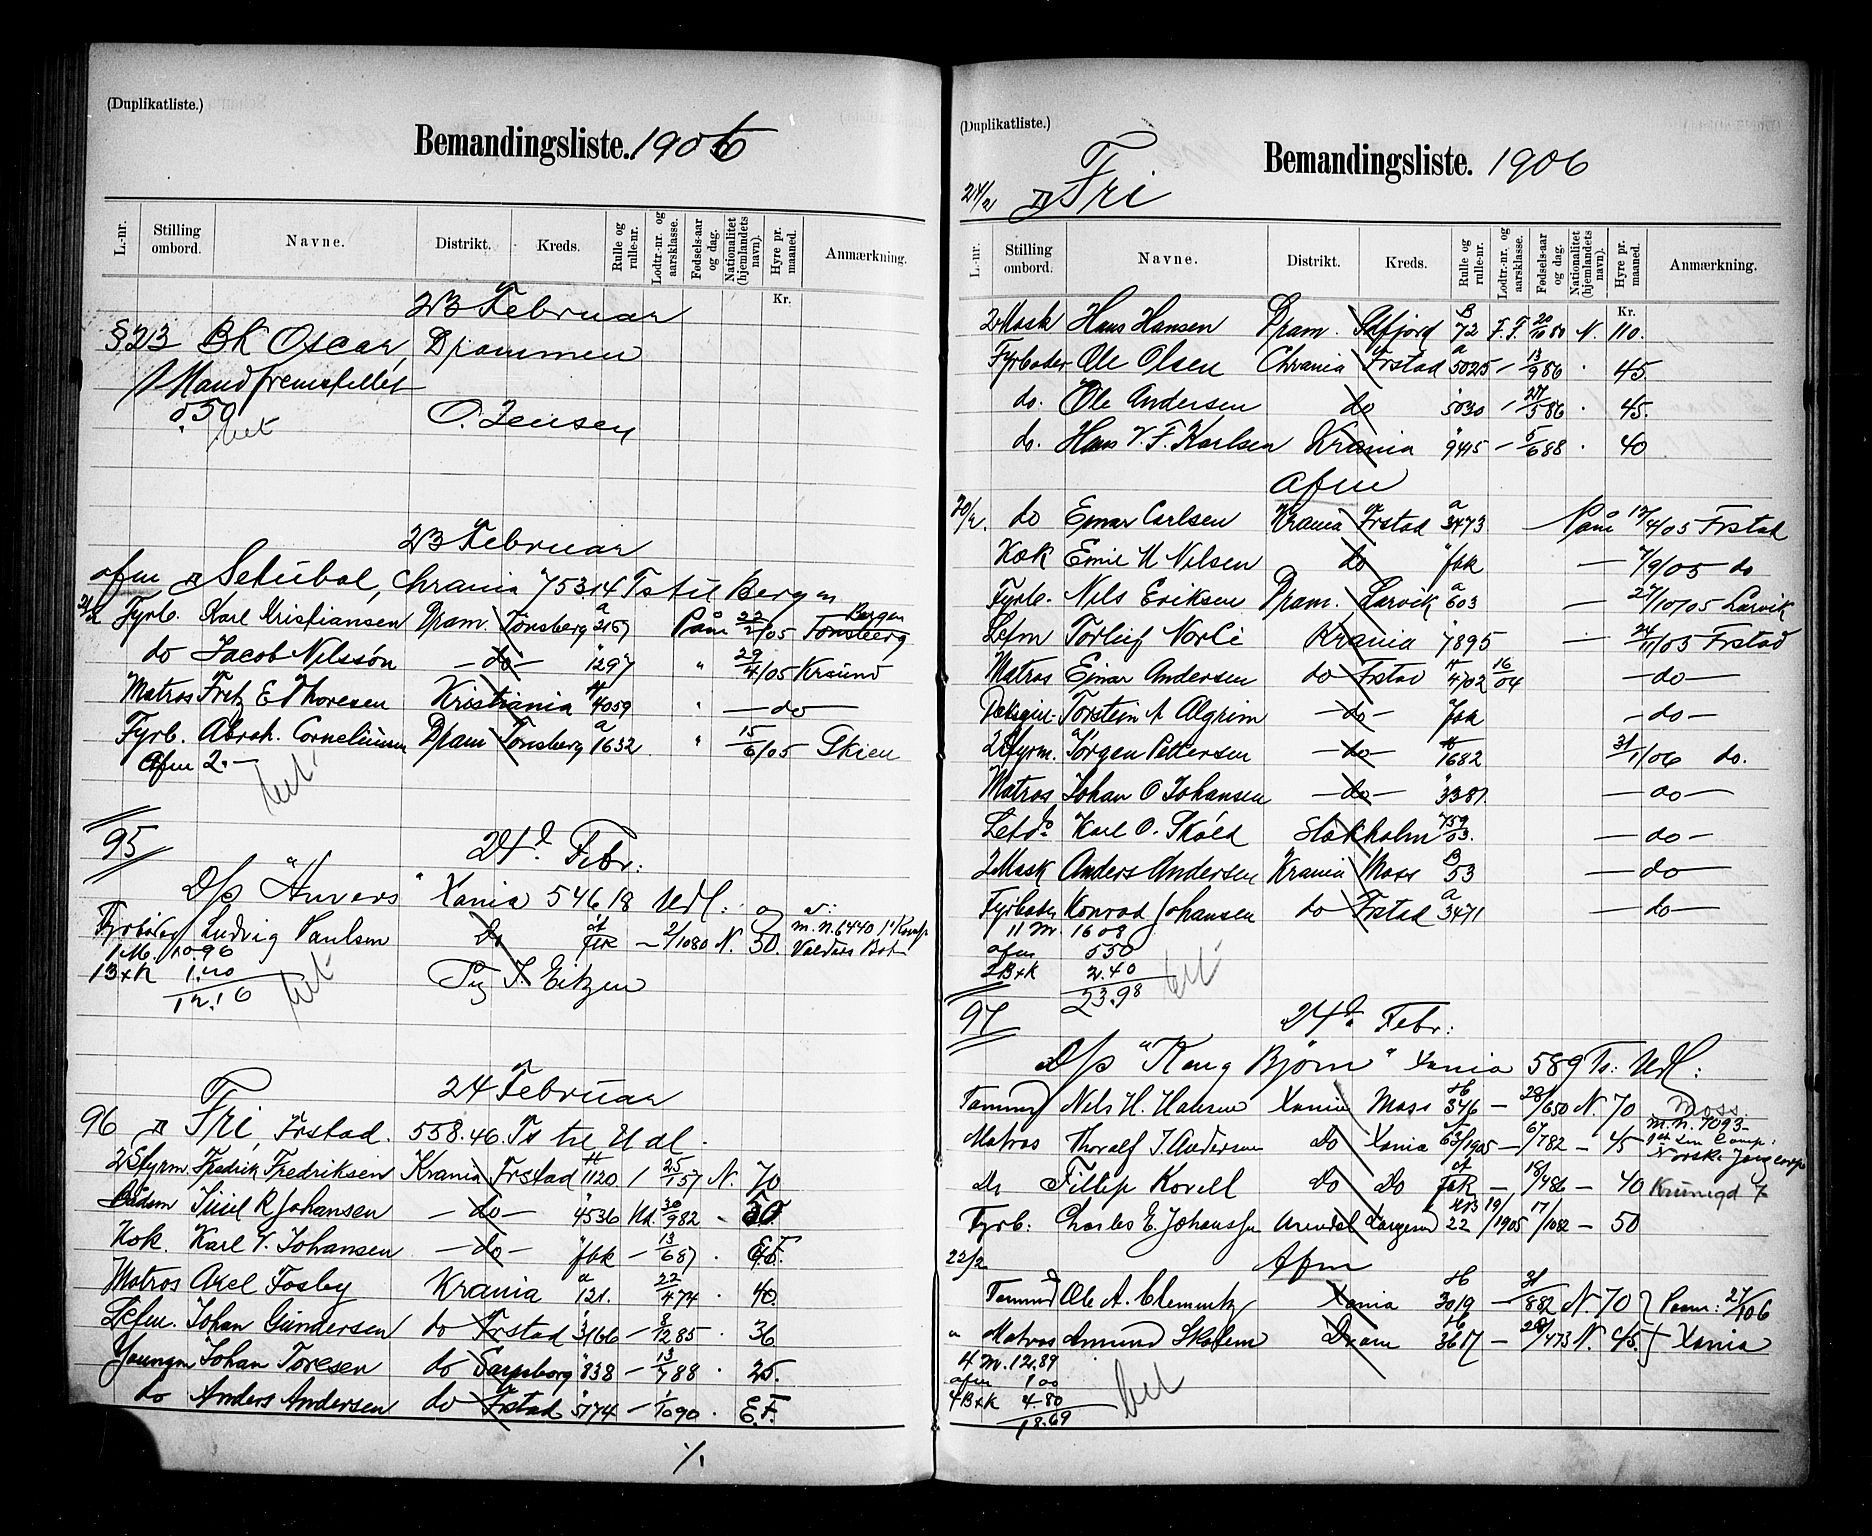 (Duplikatliste.)
Bemandingsliste. 1906
L.-nr. Stilling ombord. Navne. Distrikt. Kreds. Rulle og rulle-nr. Lodtr.-nr. og aarsklasse. Fødsels-aar og dag. Nationalitet (hjemlandets navn). Hyre pr. maaned. Anmærkning.
Kr.
23 Februar
§ 23 Bk Oscar, Drammen
1 Mand fremstillet
0.50 O. Jensen
bet
23 Februar
afm Setubal, Chrania 753.14 Ts til Bergen
21/2 Fyrb. Karl Kristiansen Dram. Tønsberg a 2167 Paam 22/2/05 Tønsberg Bergen
do Jacob Nilssøn — do — " 1297 " 29/4/05 Krsund
Matros Fritz E Thoresen Kristiania 4059 " — do —
Fyrb. Abrah. Corneliussen Dram Tønsberg a 1632 " 15/6/05 Skien
Afm 2.—
bet.
95 24d. Febr:
D/s "Anvers" Xania 546 18 Udl:
Fyrbøder Ludvig Paulsen Do fbk — 2/1080 N. 50. m. n. 6440 1' Komp Valdres Bat
1 M. 10.96
1 B+K 1.20
12.16
bet
24 Februar
96 Fri, Frstad. 558.46. Ts til Udl.
2 Styrm. Fredrik Fredriksen Krania Frstad 1120 / 25/157 N. 70
Bådsm Emil R Johansen — do — " 4536 Ud. 30/982 " 50.
Kok. Karl V. Johansen — do — " fbk — 13/687 . E.F.
Matros Axel Fosby Krania a 121. 22/474 . 40.
Letm. Johan Gundersen do Frstad " 3166 — 8/1285 . 36
Youngm Johan Toresen do Sarpsborg " 838 — 13/788 . 25.
do Anders Andersen do Frstad " 5174 — 1/1090 . E.F.
%
(Duplikatliste.)
Bemandingsliste. 1906
24/2 Fri
L.-nr. Stilling ombord. Navne. Distrikt. Kreds. Rulle og rulle-nr. Lodtr.-nr. og aarsklasse. Fødsels-aar og dag. Nationalitet (hjemlandets navn). Hyre pr. maaned. Anmærkning.
Kr.
2 Mask Hans Hansen Dram. Sdfjord B 72 F.F 20/1080 N. 110.
Fyrbøder Ole Olsen Chrania Frstad a 5025 — 13/986 . 45.
do. Ole Andersen do " 5030 — 27/586 . 45.
do. Hans V. F. Karlsen Krania " 9415 — 5/688 . 40
afm
20/2. do Ejnar Carlsen Krania Frstad a 3473 Paam 17/4/05 Frstad
Kok Emil U Nilsen do " fbk — 7/9/05 do
Fyrb. Nils Eriksen Dram. Larvik a 603 — 27/10/05 Larvik
Letm Torleif Norli Krania " 7895 — 24/11/05 Frstad
Matros Ejnar Andersen do Frstad 4702 16/04 — do —
Torstein A Algrim — do — " fbk — do —
2 Styrm. Jørgen Pettersen — do — 1682 31/1/06 do.
Matros Johan O Johansen — do — " 3381. — do —
Letm Karl O. Sköld Stokholm 759/03. — do —
2 Mask Anders Andersen Krania Moss B 53 — do —
Fyrbøder Konrad Johansen do Frstad a 3471 — do —
11 M. 16 08
afm 5.50
2 B+K 2.40
23.98
bet
97 24d. Febr:
D/s "Kong Bjørn" Xania 589 Ts: Udl:
Tømmmd Nils H. Hansen Xania Moss 346 — 28/650 N 70 Moss. m. n. 7093— 1st Lin Comp:
Matros Thoralf J. Andersen Do Xania 63/1905 — 67/782 — 45 Norske Jægercorps
Do Fillip Korell Do Do fbk — 18/486 — 40
Fyrb: Charles E. Johanssen Arendal 22 /1905 17/1082 — 50
22/2 Afm
Tømmmd Ole A. Clemmetz Xania 3019 — 31/882 N. 70 } Paam: 27/106
" Matros Amund Skolem Dram 3617 — /473 N. 45 } Xania
4 M. 12.89
afm 1 00
4 B+K 4 80
18.69
bet